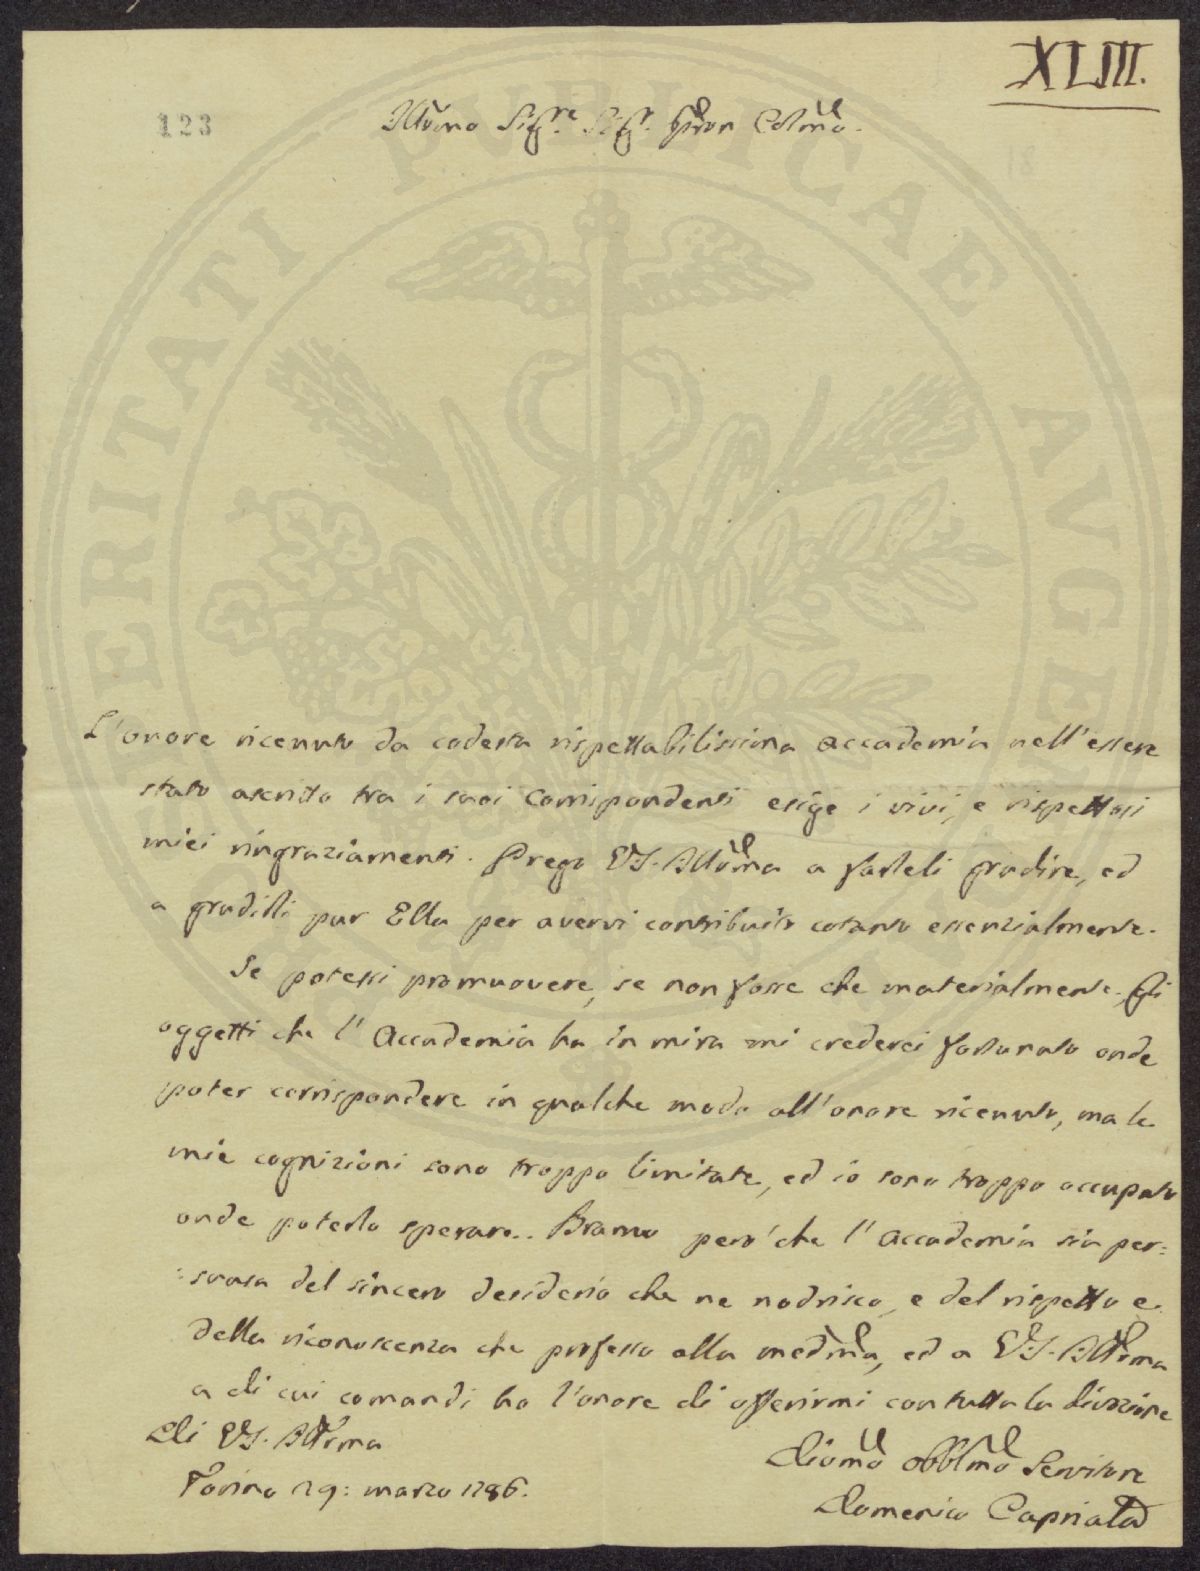 XLIII.
123
Illmo Sigre Sigr. Pron Colmo.
L'onore ricevuto da codesta rispettabilissima accademia nell'essere
stato ascritto tra i suoi Corrispondenti esige i vivi, e rispettosi
miei ringraziamenti. Prego V.S. Illma a farleli gradire, ed
a gradirli pur Ella per avervi contribuito cotanto essenzialmente.
Se potessi promuovere, se non fosse che materialmente, gli
oggetti che l'Accademia ha in mira mi crederei fortunato onde
poter corrispondere in qualche modo all'onore ricevuto, ma le
mie cognizioni sono troppo limitate, ed io sono troppo occupato
onde poterlo sperare. Bramo però che l'accademia sia per:
:suasa del sincero desiderio che ne nodrisco, e del rispetto e
della riconoscenza che professo alla medma, ed a V.S. Illma
a di cui comandi ho l'onore di offerirmi con tutta la divozione
Di V.S. Illma
Torino 29: marzo 1786.
Divmo obblmo Servitore
Domenico Capriata
VERITATI PUBLICAE AVGEN